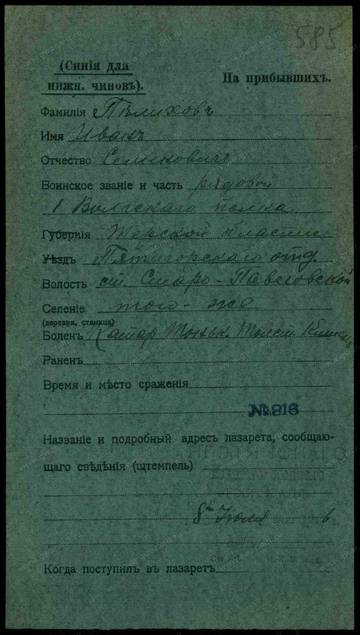 585
(Синія для
нижн. чиновъ).
На прибывшихъ.
Фамилія Пѣлиховъ
Имя Иванъ
Отчество Семеновичъ
Воинское званіе и часть рядовой
1 Волжскаго полка
Губернія Терской области
Уѣздъ Пятигорскаго отд.
Волость ст. Старо-Павловской
Селеніе того-же
(деревня, станица)
Боленъ Катар тоньк. толст. кишекъ
Раненъ
Время и мѣсто сраженія
№816
Названіе и подробный адресъ лазарета, сообщаю-
щаго свѣдѣнія (штемпель)
8 Іюля
Когда поступилъ въ лазаретъ